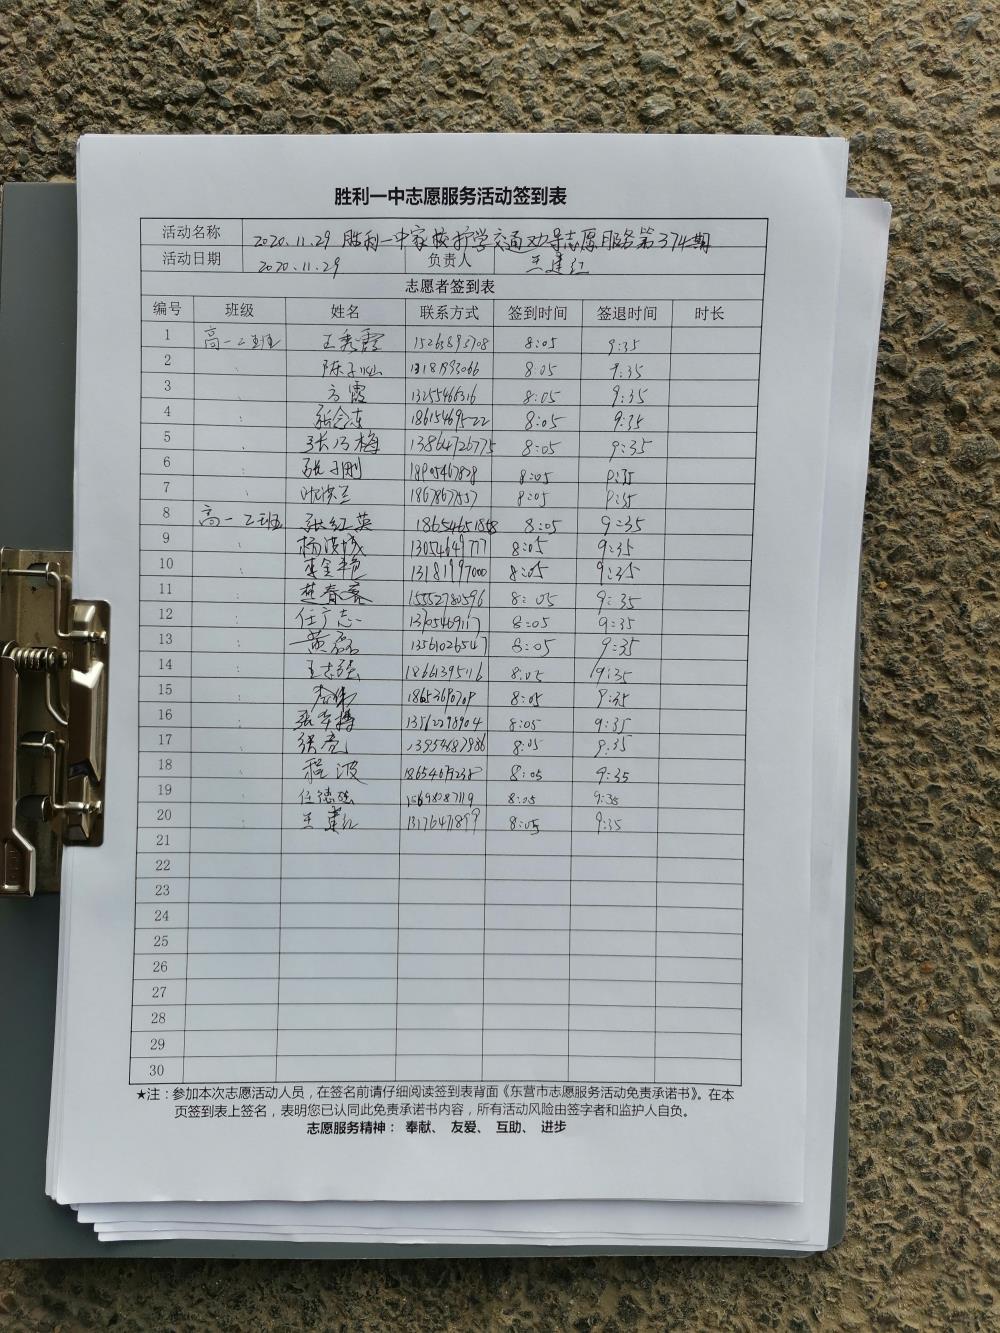 胜利一中志愿服务活动签到表
活动名称 2020.11.29 胜利一中家校护学交通劝导志愿服务第374期
活动日期 2020.11.29 负责人 王建红
志愿者签到表
编号 班级 姓名 联系方式 签到时间 签退时间 时长
1 高一2班 王秀霞 8:05 9:35
2 8:05 9:35
3 方霞 13255466316 8:05 9:35
4 18615469522 8:05 9:35
5 张乃梅 13864726775 8:05 9:35
6 18905467878 8:05 9:35
7 8:05 9:35
8 高一2班 张红英 18654651858 8:05 9:35
9 杨洪城 13054649777 8:05 9:35
10 13181997000 8:05 9:35
11 15552780596 8:05 9:35
12 任广志 8:05 9:35
13 黄磊 13561026547 8:05 9:35
14 王志强 18661395116 8:05 9:35
15 8:05 9:35
16 13562298904 8:05 9:35
17 张亮 13954687986 8:05 9:35
18 程波 8:05 9:35
19 任德强 15698087119 8:05 9:35
20 王建红 13176471899 8:05 9:35
21
22
23
24
25
26
27
28
29
30
★注：参加本次志愿活动人员，在签名前请仔细阅读签到表背面《东营市志愿服务活动免责承诺书》。在本
页签到表上签名，表明您已认同此免责承诺书内容，所有活动风险由签字者和监护人自负。
志愿服务精神： 奉献、 友爱、 互助、 进步